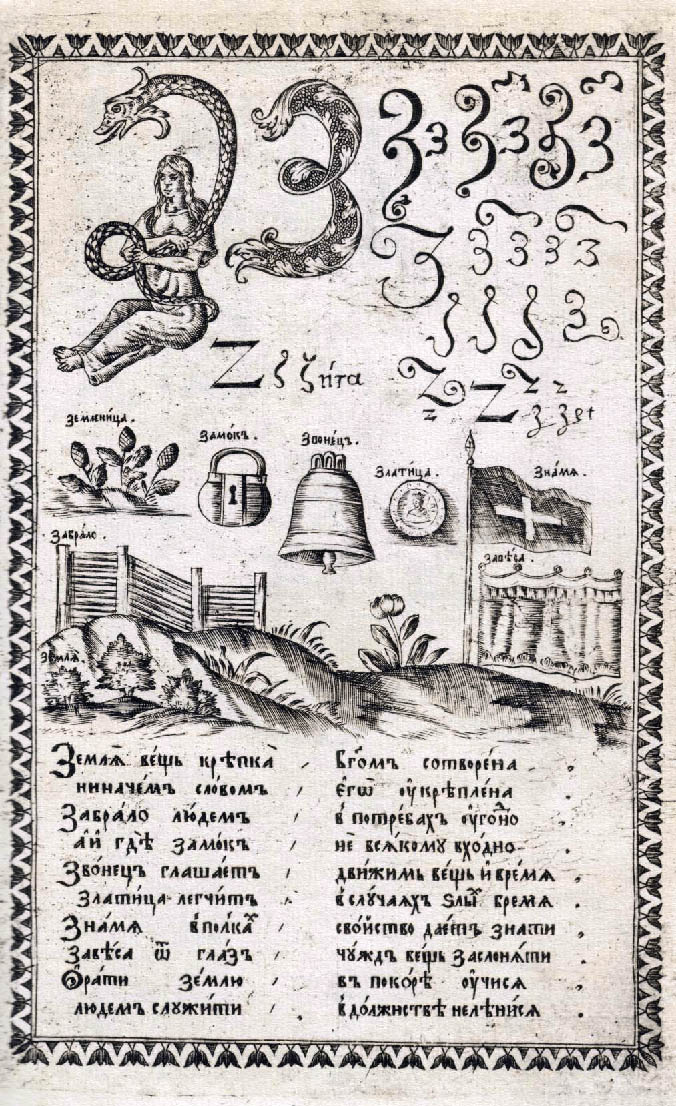 З З З з З з З з З з
З З з з з З
ζ ζ ζ ζ
Z ζ ζи́та Z z Z z z z zet
Земленица.
Замо́къ.
Звоне́цъ.
Златица.
Зна́мя.
Забра́ло.
Завѣ́са.
Земля̀.
Землѧ̀ ве́щь крѣпка̀ , Бг҃омъ сотворе́на .
ниначе́мъ сло́вомъ , є҆гѡ̀ ᲂу҆крѣпле́на .
Забра́ло лю́демъ , в потре́бахъ ᲂу҆го́дно
а҆ и҆ гдѣ̀ замо́къ , не вся́кому вхо́дно
Звоне́цъ глаша́етъ , дви́жимь ве́щь и҆ вре́мя .
Златица легчи́тъ , в слу́чаяхъ ѕлы́хъ бре́мя .
Зна́мя в полка́хъ , сво́йство дае́тъ зна́ти .
Завѣ́са ѿ гла́зъ , чу́ждъ ве́щь заслоня́ти
Ѻ҆ра́ти зе́млю , въ поко́рѣ ᲂу҆чи́ся
лю́демъ служи́ти , в до́лжнствѣ нелѣни́ся .